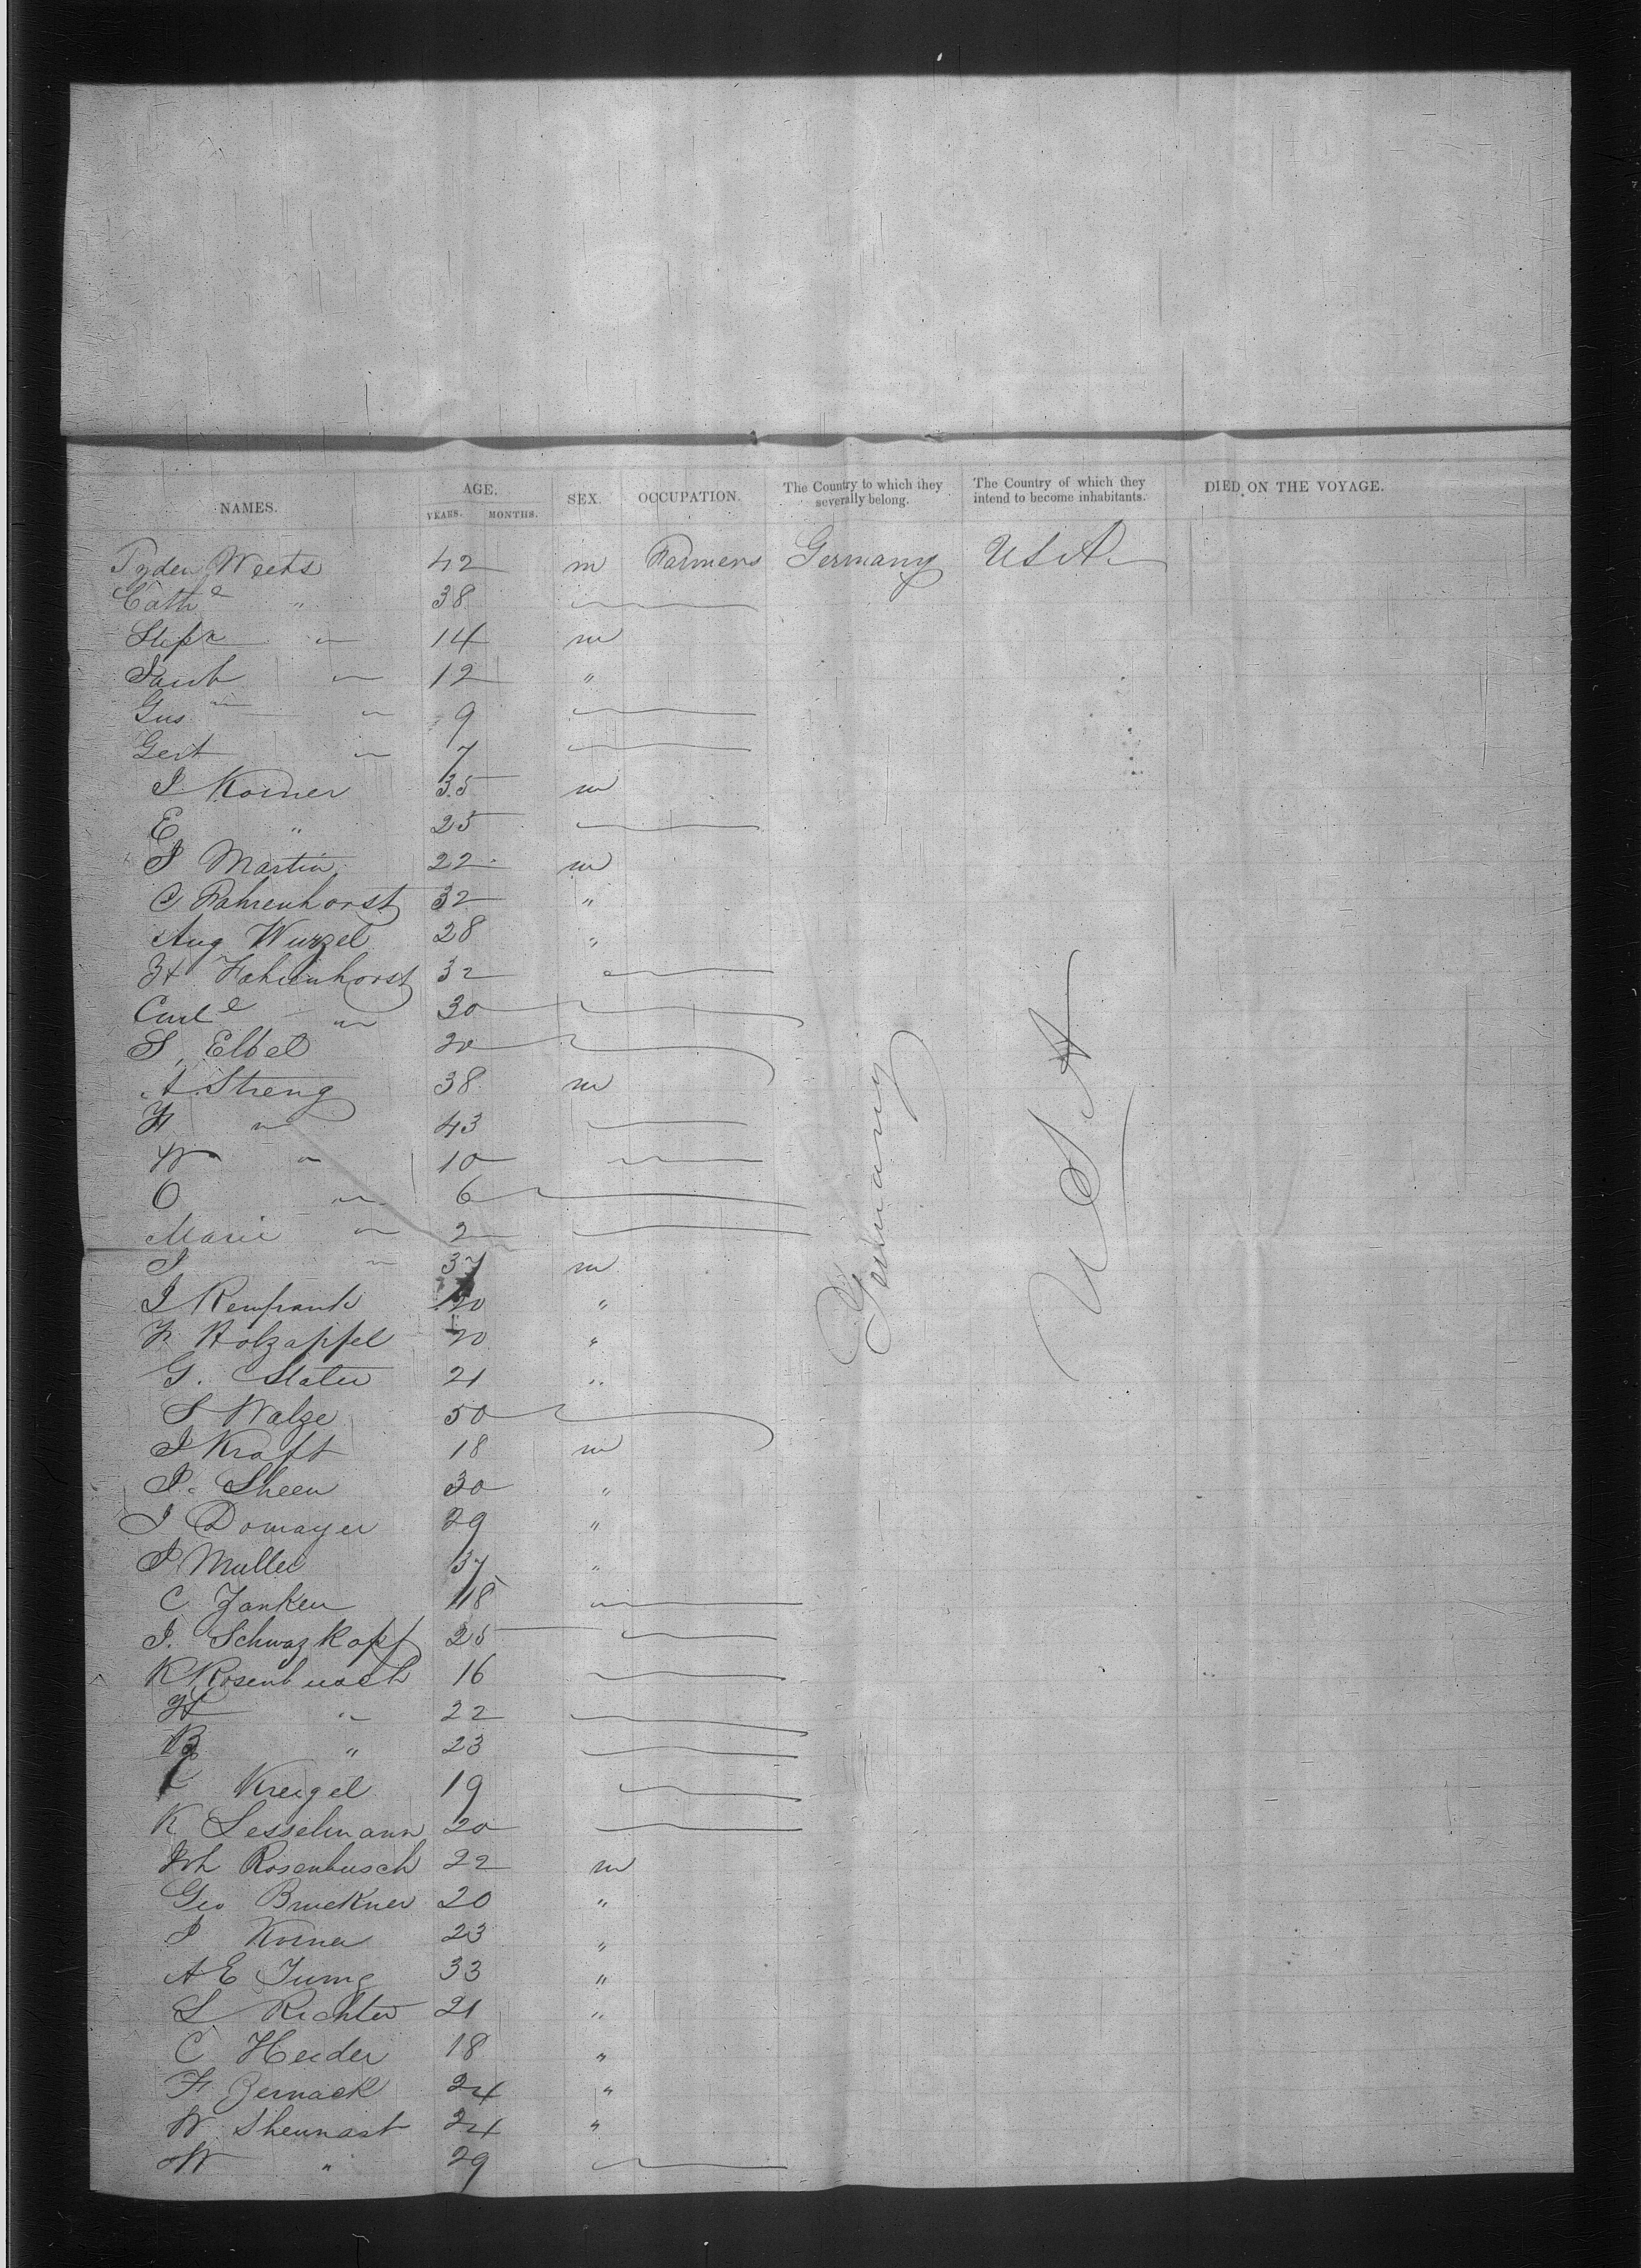 NAMES. AGE. SEX. OCCUPATION. The Country to which they severally belong. The Country of which they intend to become inhabitants. DIED ON THE VOYAGE.
YEARS. MONTHS.
Tyden Weets 42 m Farmers Germany USA
Cathe " 38
Steph " 14 m
Jacob " 12 "
Gus " 9
Gert " 7
J. Korner 35 m
E " 25
J Martin 22 m
C Fahrenhorst 32 "
Aug Wurzel 28 "
H Fahrenhorst 32
Carle " 30
S, Elbel 20
A. Streng 38 m
F " 43
W " 10
O " 6
Marie " 2
J " 37 m
J 20 "
F Holzapfel 20 "
G. Slater 21 "
S Walze 50
J Kraft 18 m
P. Sheen 30 "
J Domayer 29 "
P Muller 37 "
C Janken 18
J. Schwazkopf 25
K Rosenbusch 16
" 22
B " 23
Kreigel 19
K Lesselmann 20
Joh Rosenbusch 22 m
Geo Bruckner 20 "
J Korner 23 "
A E Jung 33 "
L Richter 21 "
C Heider 18 "
F Zernack 24 "
W. Shennast 24 "
W " 29
Germany
U S A